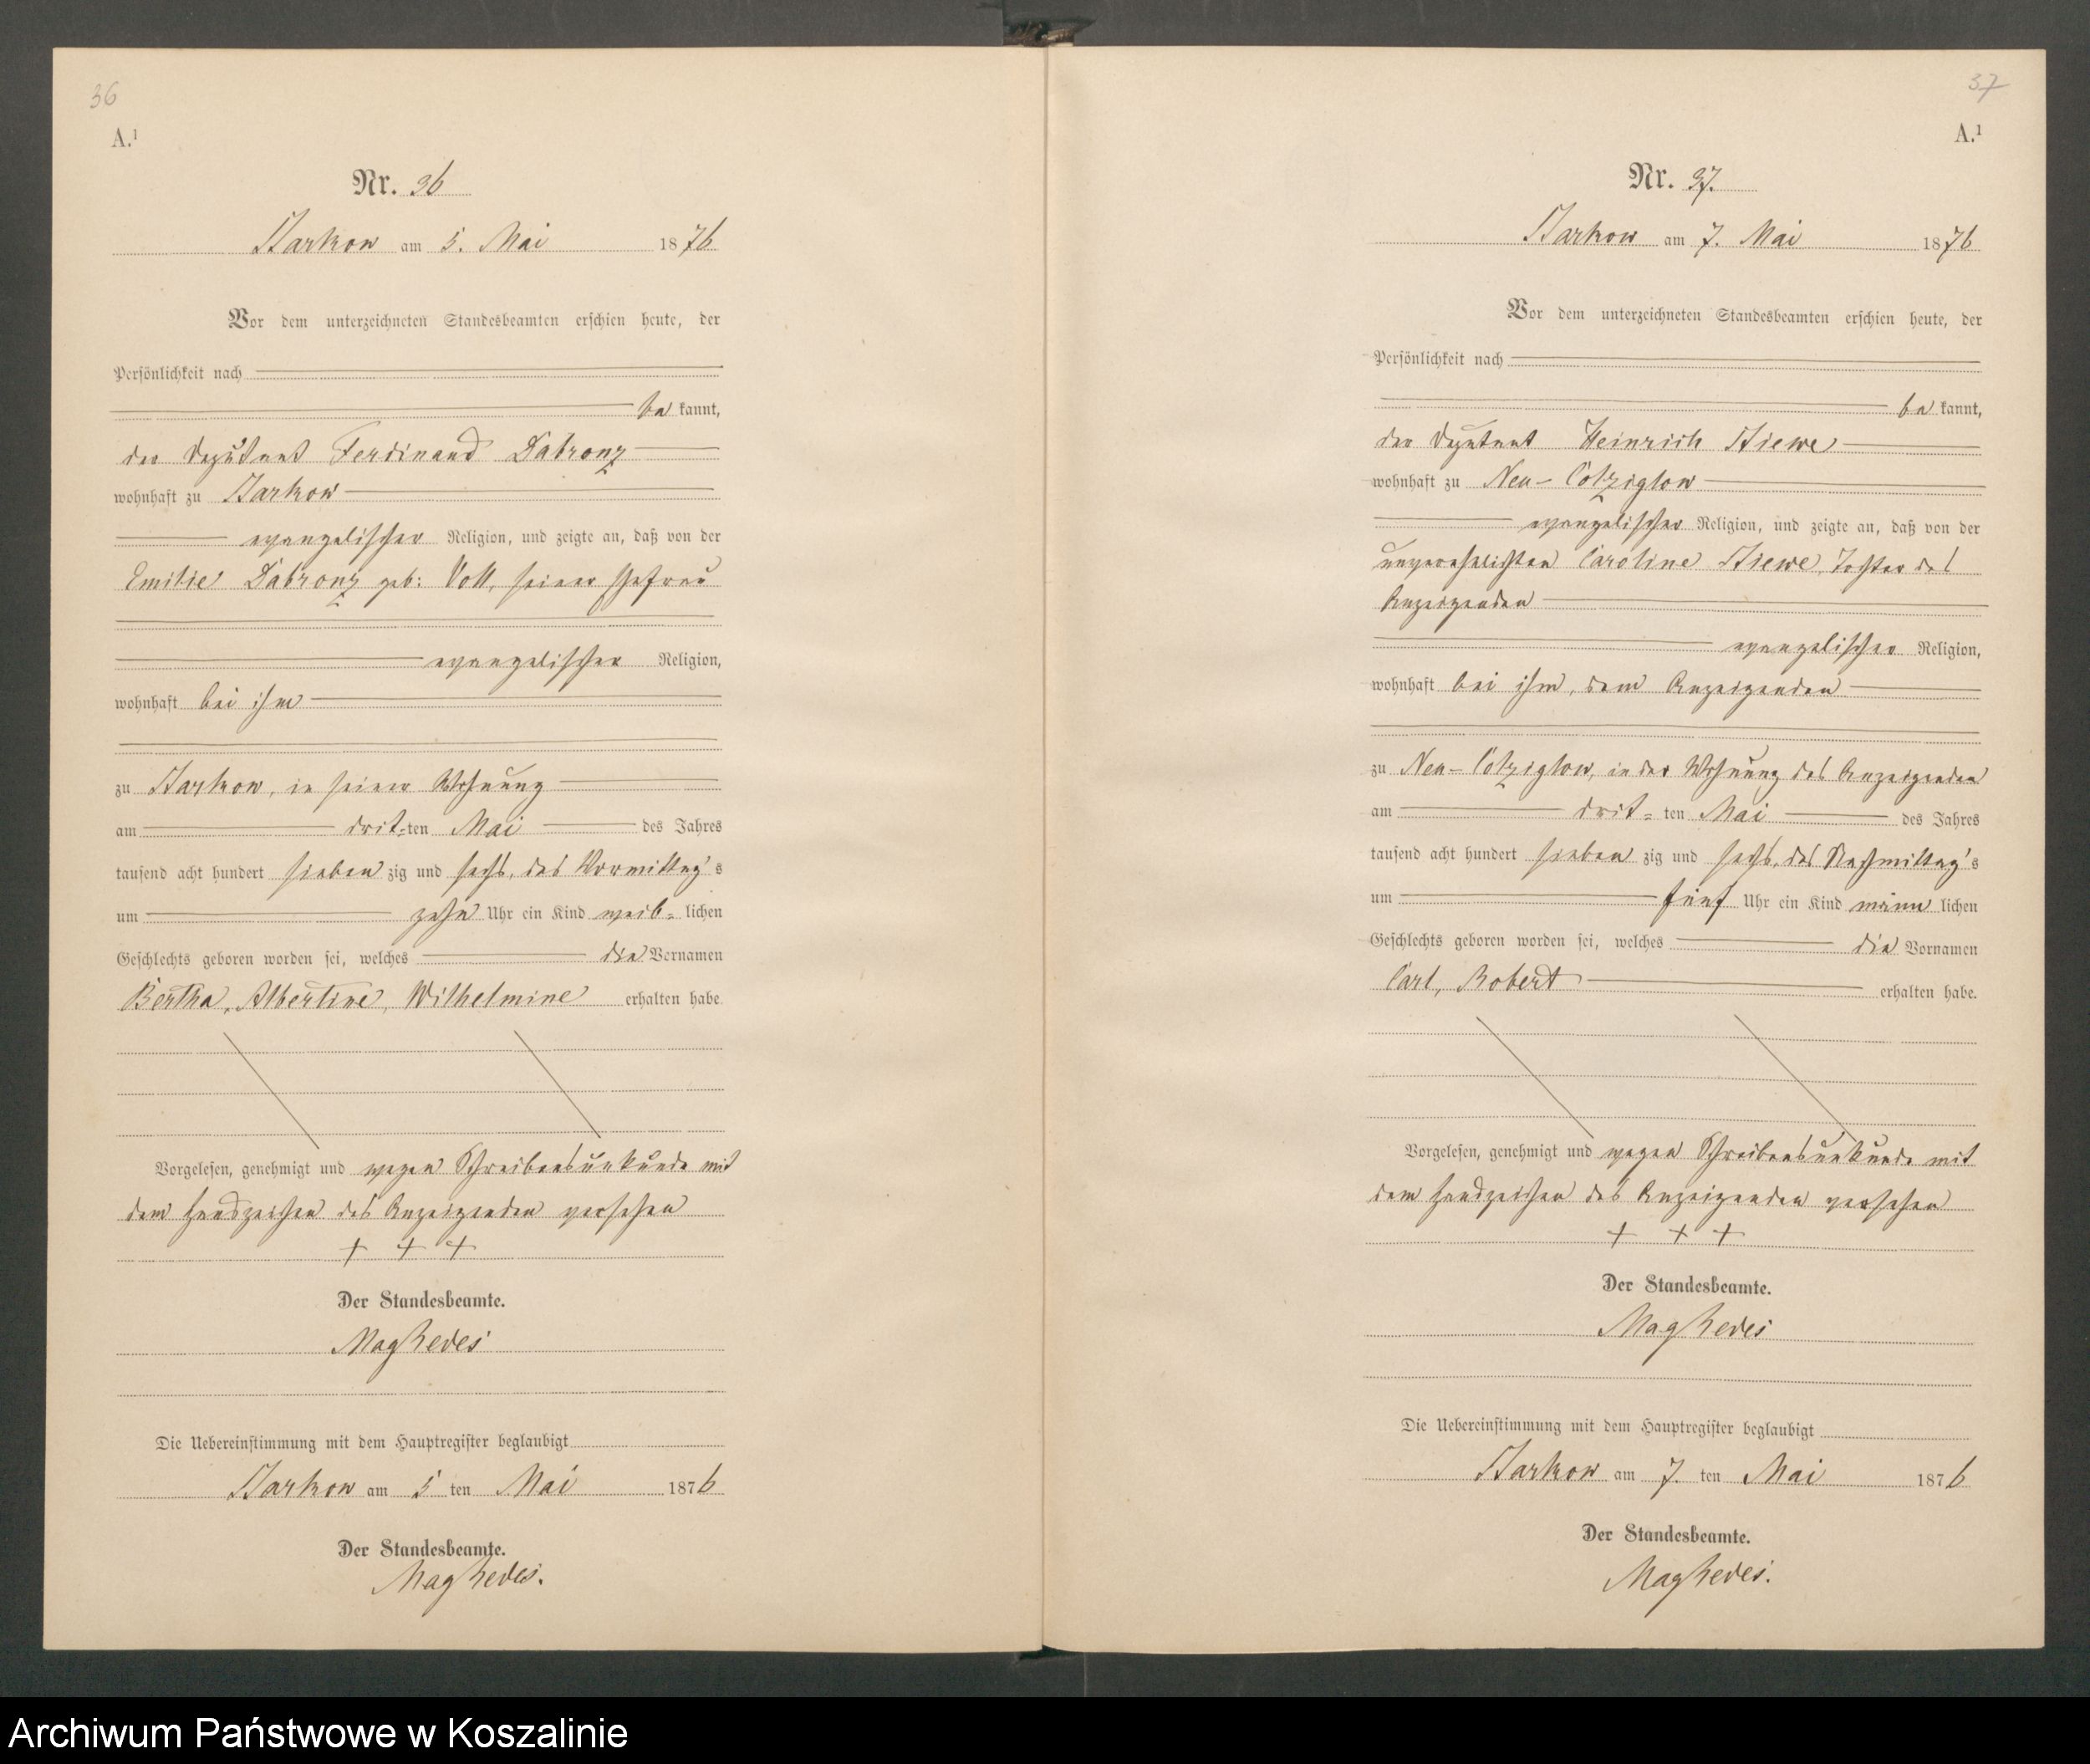 36
A.¹
Nr. 36
Starkow am 5. Mai 1876
Vor dem unterzeichneten Standesbeamten erschien heute, der
Persönlichkeit nach
be kannt,
der Deputant Ferdinand Dabronz
wohnhaft zu Starkow
evangelischer Religion, und zeigte an, daß von der
Emilie Dabronz geb: Voll, seiner Ehefrau
evangelischer Religion,
wohnhaft bei ihm
zu Starkow, in seiner Wohnung
am drit-ten Mai des Jahres
tausend acht hundert sieben zig und sechs, des Vormittag's
um zehn Uhr ein Kind weib- lichen
Geschlechts geboren worden sei, welches die Vornamen
Bertha, Albertine, Wilhelmine erhalten habe.
Vorgelesen, genehmigt und wegen Schreibensunkunde mit
dem Handzeichen des Anzeigenden versehen
+ + +
Der Standesbeamte.
Die Uebereinstimmung mit dem Hauptregister beglaubigt
Starkow am 5 ten Mai 1876
Der Standesbeamte.
37
A.¹
Nr. 37.
Starkow am 7. Mai 1876
Vor dem unterzeichneten Standesbeamten erschien heute, der
Persönlichkeit nach
be kannt,
der Deputant Heinrich Stiewe
wohnhaft zu Neu-Colziglow
evangelischer Religion, und zeigte an, daß von der
unverehelichten Caroline Stiewe, Tochter des
Anzeigenden
evangelischer Religion,
wohnhaft bei ihm, dem Anzeigenden
zu Neu-Colziglow, in der Wohnung des Anzeigenden
am drit- ten Mai des Jahres
tausend acht hundert sieben zig und sechs, des Nachmittag's
um fünf Uhr ein Kind männ lichen
Geschlechts geboren worden sei, welches die Vornamen
Carl, Robert erhalten habe.
Vorgelesen, genehmigt und wegen Schreibensunkunde mit
dem Handzeichen des Anzeigenden versehen
+ + +
Der Standesbeamte.
Die Uebereinstimmung mit dem Hauptregister beglaubigt
Starkow am 7. ten Mai 1876
Der Standesbeamte.
Archiwum Państwowe w Koszalinie